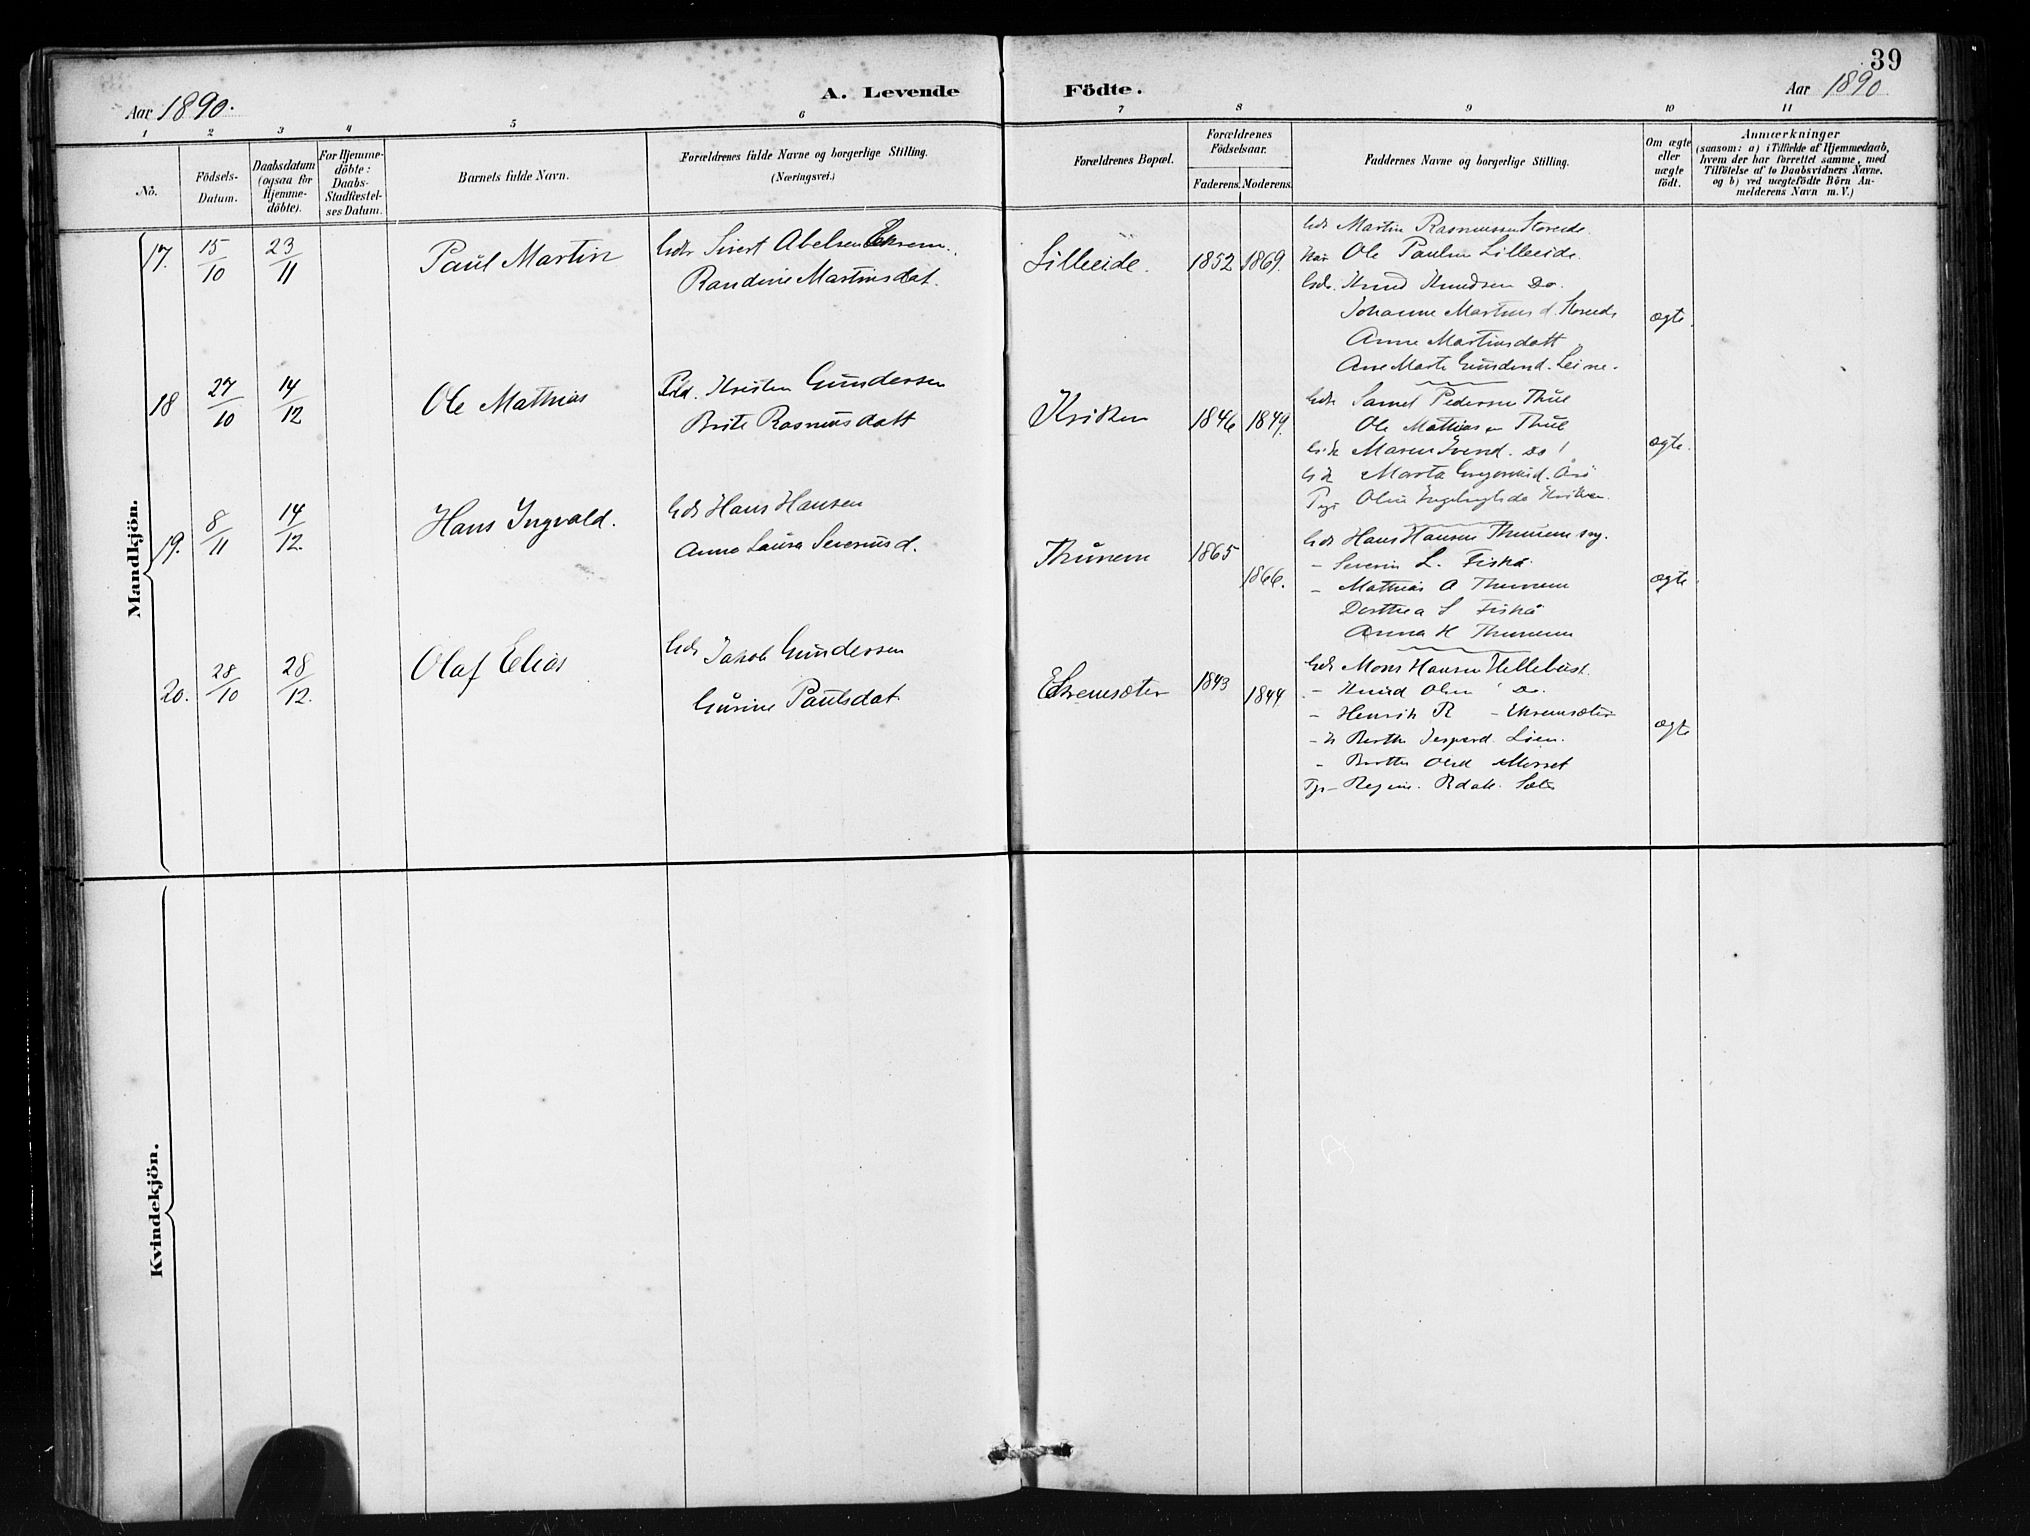 39
Aar 1890.
A. Levende Födte.
Aar 1890
1 2 3 4 5 6 7 8 9 10 11
No.
Födsels-Datum.
Daabsdatum (ogsaa for Hjemme-döbte).
For Hjemme-döbte: Daabs-Stadfæstel-ses Datum.
Barnets fulde Navn.
Forældrenes fulde Navne og borgerlige Stilling. (Næringsvei.)
Forældrenes Bopæl.
Forældrenes Födselsaar.
Faderens. Moderens.
Faddernes Navne og borgerlige Stilling.
Om ægte eller uægte födt.
Anmærkninger (saasom: a) i Tilfælde af Hjemmedaab, hvem der har forrettet samme, med Tilföielse af to Daabsvidners Navne. og b) ved uægtefödte Börn Anmelderens Navn m. V.)
Mandkjön.
17. 15/10 23/11 Paul Martin
Gdr Sivert Abelsen Ekrem.
Randine Martinsdat.
Lilleeide. 1852 1869.
Gdr Martin Rasmussen Storeide
Ole Paulsen Lilleeide.
Gdr. Knud Knudsen Do.
Johanne Martins d. Storeide
Anne Martinsdatt
Ane Marte Leine.
ægte.
18 27/10 14/12 Ole Mathias
Kristen Gundersen
Brite Rasmusdatt
Kriken 1846 1849.
Gdr Samel Pedersen Thue
Ole Mathiasen Thue
Maren Do
Marta
Pge Oline Kriken
ægte.
19. 8/11 14/12. Hans Ingvald.
Gdr Hans Hansen
Anna Laura Severinsd.
Thunem 1865 1866.
Gdr Hans Hansen Thunem
- Severin L. Fiskå
- Mathias A Thunem
Dorthea S Fiskå
Anna H Thunem
ægte
20. 28/10 28/12. Olaf Elias
Gdr Jakob Gundersen
Gurine Paulsdat
Ekremsæter 1843 1844
Gdr Mons Hansen Hellebust
- Knud Olsen Do.
- Henrik R - Ekremsæter
- K Berthe Jesperd. Løen.
- Berthe Olsd Mosset
Pge - Regine. Rdatt. Sæter
ægte
Kvindekjön.